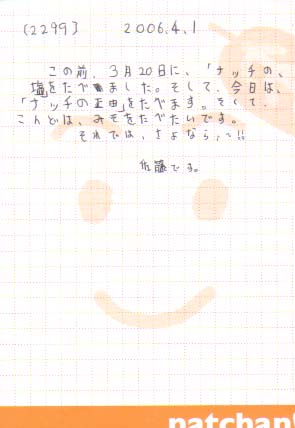 [2299] 2006.4.1
この前、3月20日に、「ナッチの、
塩をたべました。そして、今日は、
「ナッチの正由」をたべます。そして、
こんどは、みそをたべたいです。
それでは、さよなら、~!!
佐藤です。
patchan